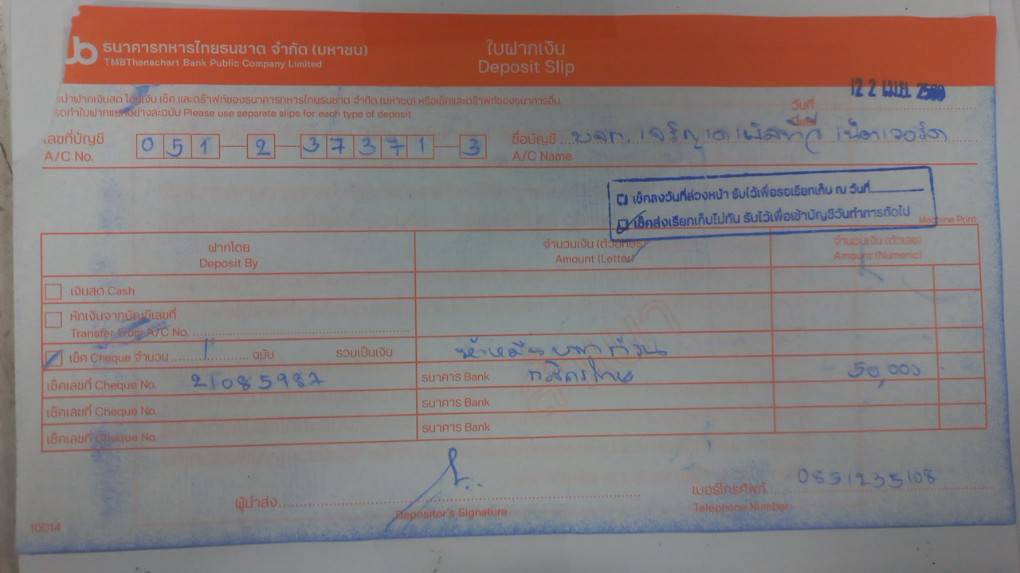 ธนาคารทหารไทยธนชาต จำกัด (มหาชน)
TMBThanachart Bank Public Company Limited
ใบฝากเงิน
Deposit Slip
เช็ค และดร๊าฟท์ของธนาคารทหารไทยธนชาต จำกัด (มหาชน) หรือเช็คและดร๊าฟท์ของธนาคารอื่น
Please use separate slips for each type of deposit
วันที่ 22 เม.ย.
เลขที่บัญชี 051-2-37371-3
A/C No.
ชื่อบัญชี บจก. เจริญ
A/C Name
เช็คลงวันที่ล่วงหน้า รับไว้เพื่อรอเรียกเก็บ ณ วันที่
เช็คส่งเรียกเก็บไม่ทัน รับไว้เพื่อเข้าบัญชีวันทำการถัดไป
Machine Print
ฝากโดย
Deposit By
จำนวนเงิน (ตัวอักษร)
Amount (Letter)
จำนวนเงิน (ตัวเลข)
Amount (Numeric)
เงินสด Cash
หักเงินจากบัญชีเลขที่
Transfer From A/C No.
เช็ค Cheque จำนวน 1 ฉบับ รวมเป็นเงิน ห้าหมื่นบาทถ้วน
เช็คเลขที่ Cheque No. 21085987 ธนาคาร Bank กสิกรไทย 50,000
เช็คเลขที่ Cheque No. ธนาคาร Bank
เช็คเลขที่ Cheque No. ธนาคาร Bank
ผู้นำส่ง
Depositor's Signature
เบอร์โทรศัพท์ 0851235108
Telephone Number
10014